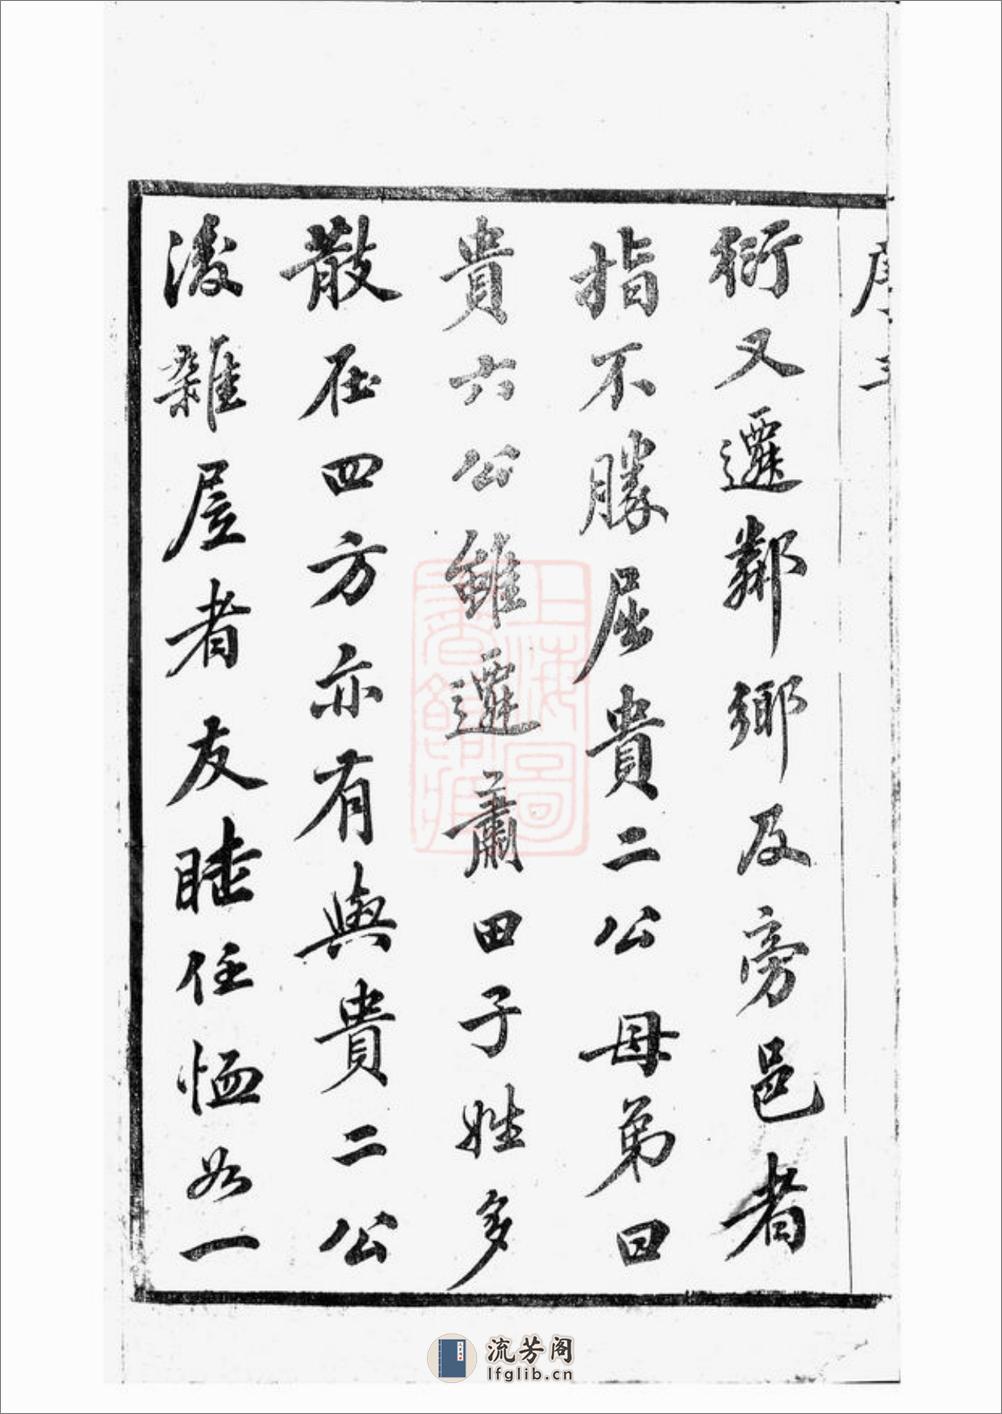 序 三
衍又遷鄰鄉及旁邑者
指不勝屈貴二公母弟曰
貴六公雖遷蕭田子姓多
散在四方亦有與貴二公
後雜居者友睦任恤如一
上海圖書館藏
流芳阁
lfglib.cn